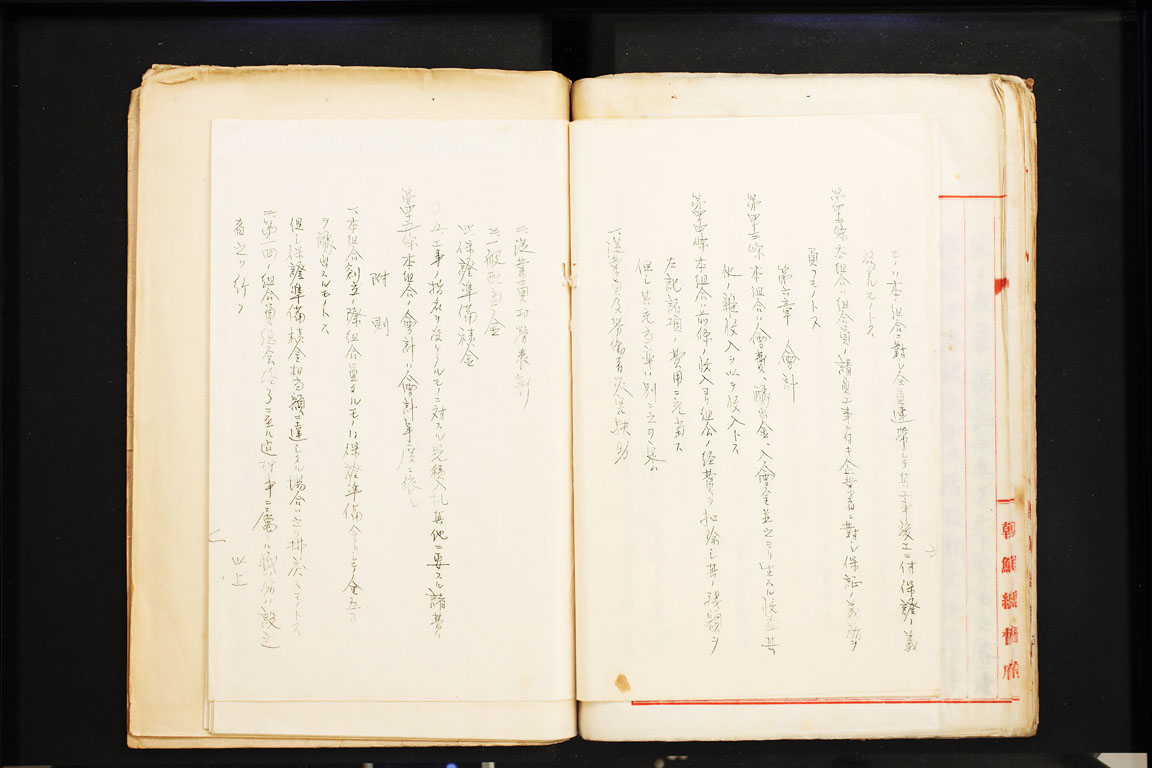 モノハ本組合ニ對シ全員連帶シテ其工事竣工ニ付保證ノ義
務アルモノトス
第四十二條 本組合ハ組合員ノ請負工事ニ付キ企業者ニ對シ保証ノ義務ヲ
負フモノトス
第六章 會計
第四十三條 本組合ハ會費、醵出金、入會金並之ヨリ生スル收益其
他ノ雜收入ヲ以テ收入トス
第四十四條 本組合ハ前條ノ收入ヨリ組合ノ經費ヲ扣除シ其ノ殘額ヲ
左記諸項ノ費用ニ充當ス
但シ其充當率ハ別ニ之ヲ定ム
一、從業員及勞働者災害扶助
二、從業員功勞表彰
三、一般配當金
四、保證準備積金
五、工事ノ指名ヲ受ケタルモノニ対スル見積入札其他ニ要スル諸費
第四十五條 本組合ノ會計ハ會計年度ニ依ル
附則
一、本組合創立ノ際組合員タルモノハ保證準備金トシテ金五
ヲ醵出スルモノトス
但シ保證準備積金相当額ニ達シタル場合ハ之ヲ拂戻スモノトス
二、第一回ノ組合員總会終了ニ至ル迄理事ニ屬スル職務ハ設立
者之ヲ行フ
以上
朝鮮總督府